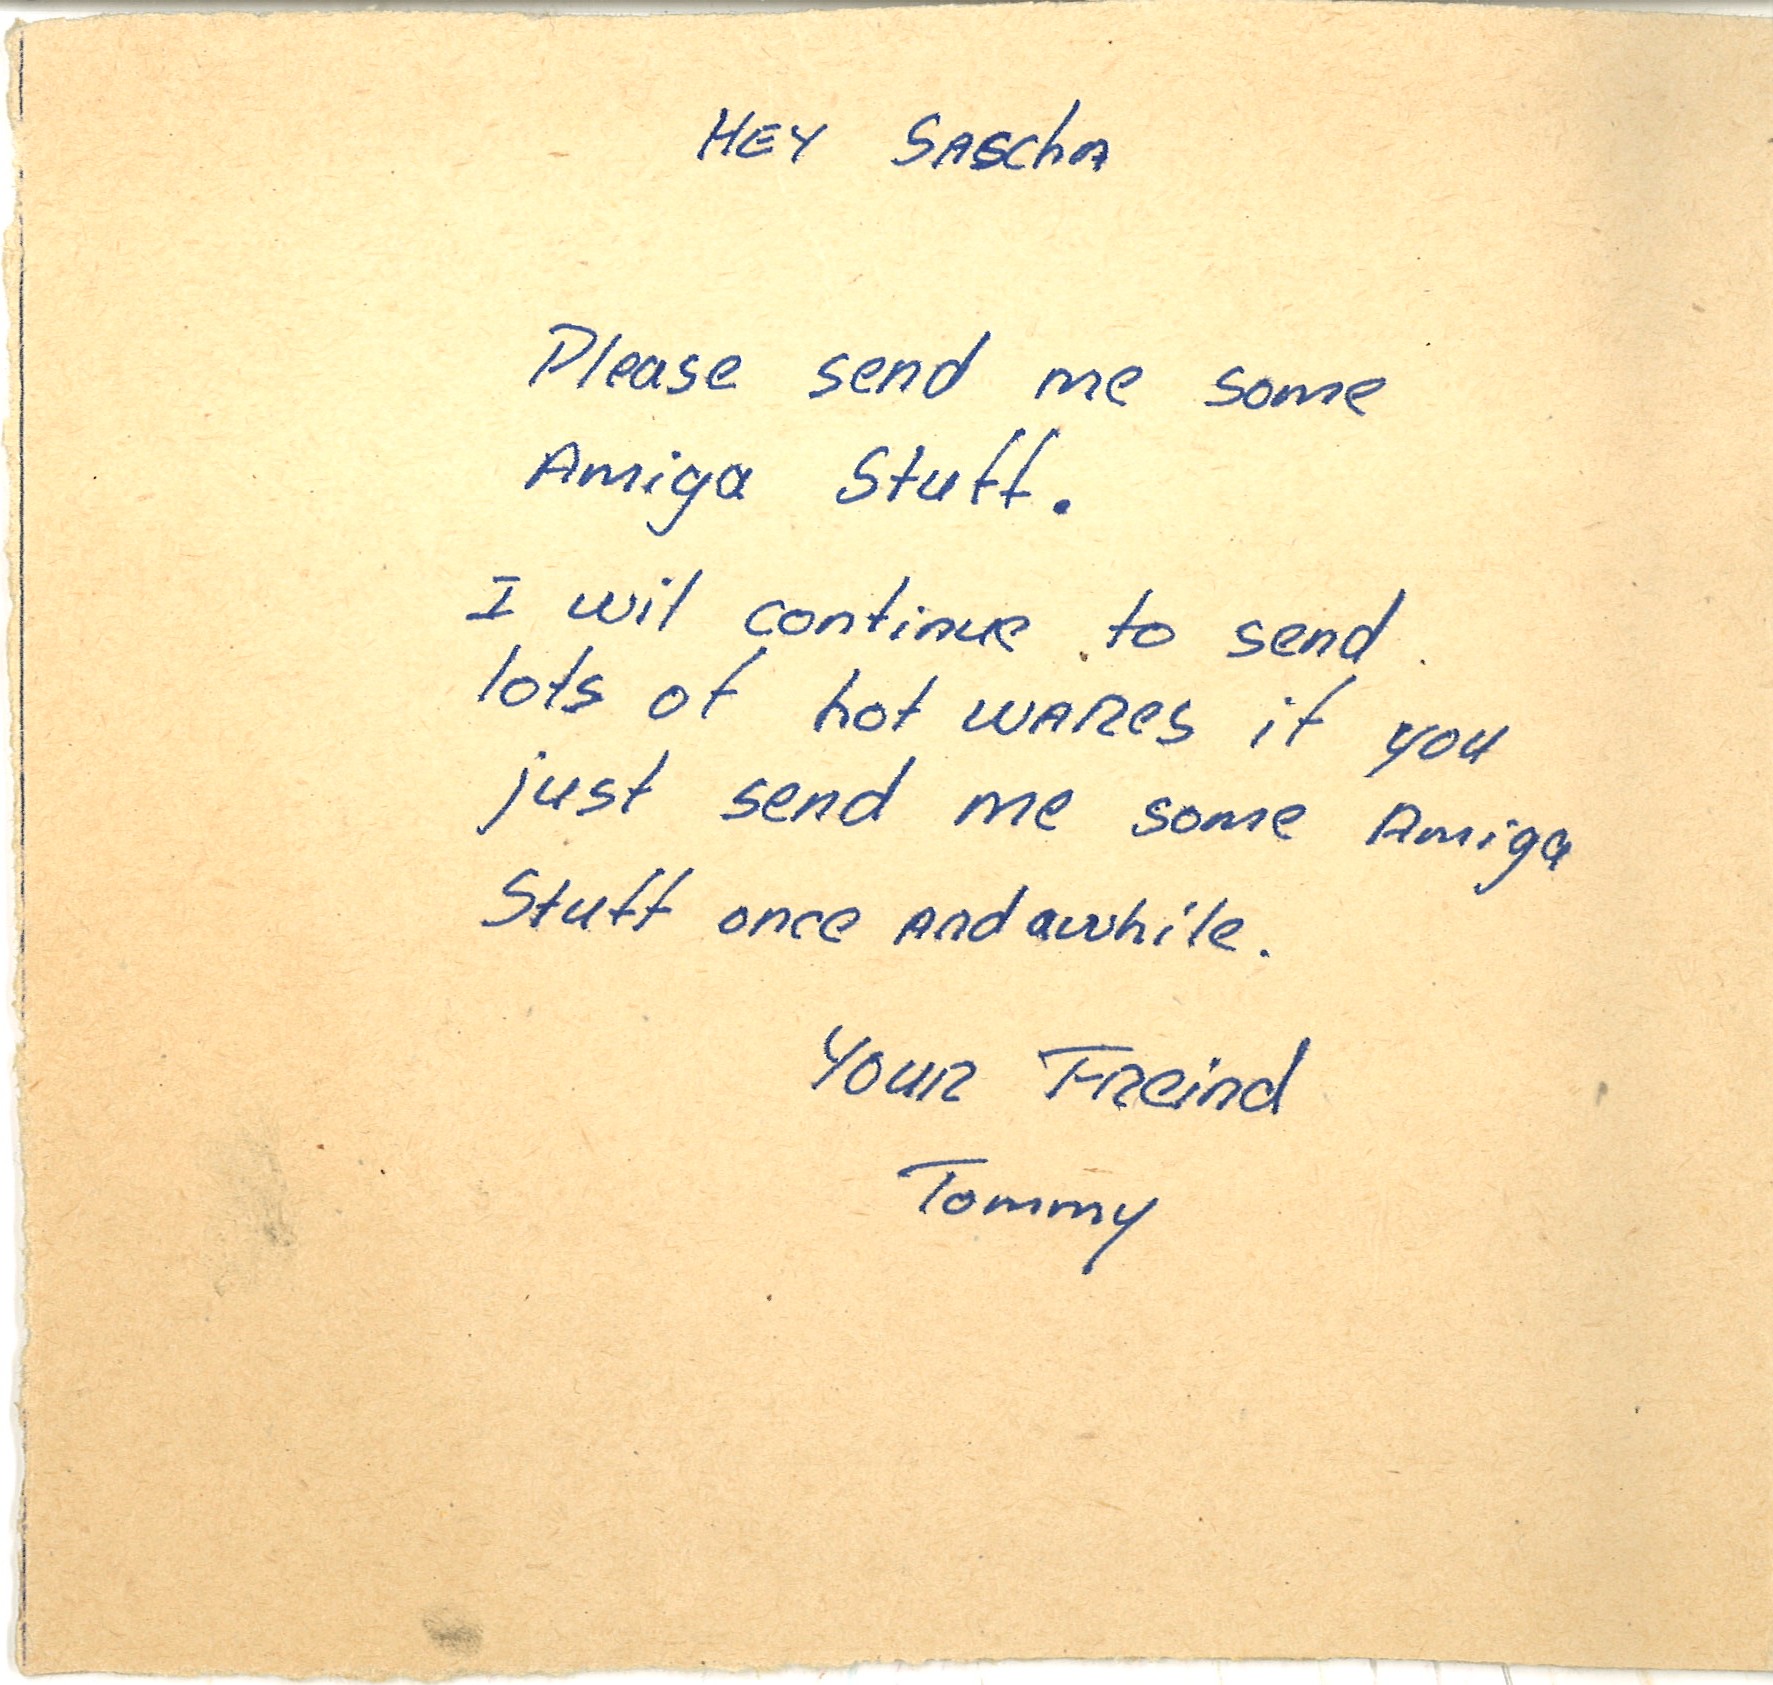 HEY SAScha
Please send me some
Amiga Stuff.
I wil continue to send
lots of hot waRes if you
just send me some Amiga
Stuff once and awhile.
Your FReind
Tommy